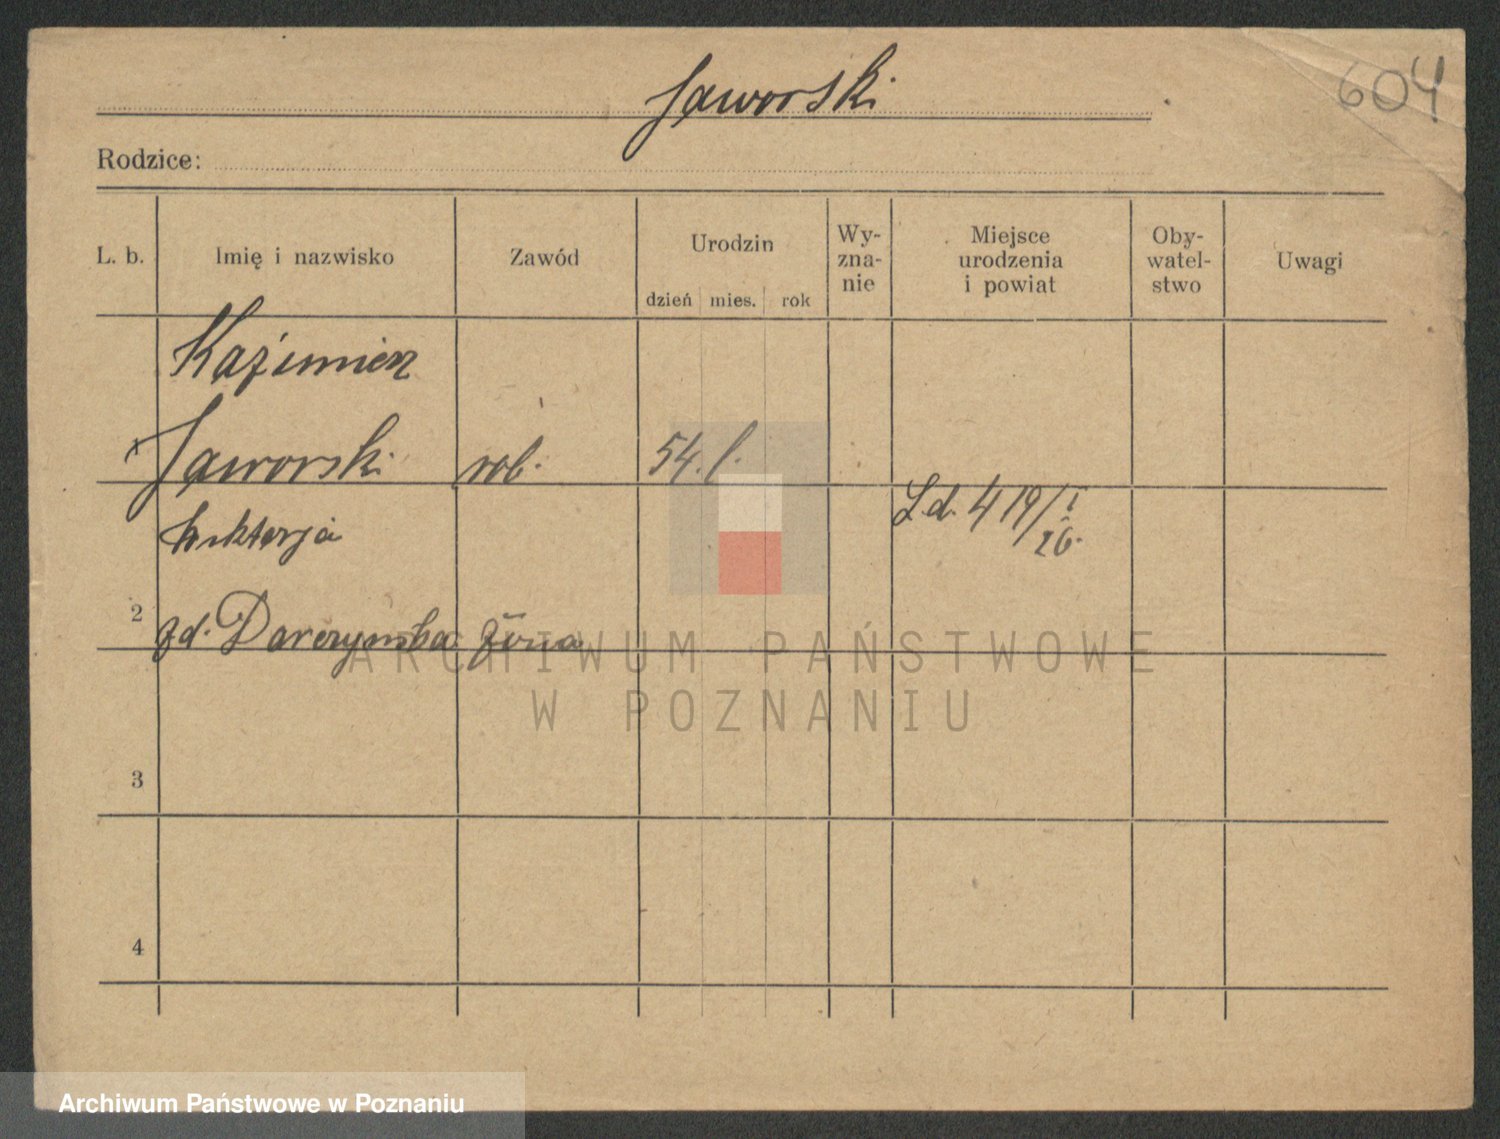 Jaworski
604
Rodzice:
L. b. Imię i nazwisko Zawód Urodzin Wyznanie Miejsce urodzenia i powiat Obywatelstwo Uwagi
dzień mies. rok
Kazimierz
1 Jaworski rob. 54. l.
Wiktorja L.d. 4 19/I 26.
2 żona
3
4
ARCHIWUM PAŃSTWOWE
W POZNANIU
Archiwum Państwowe w Poznaniu